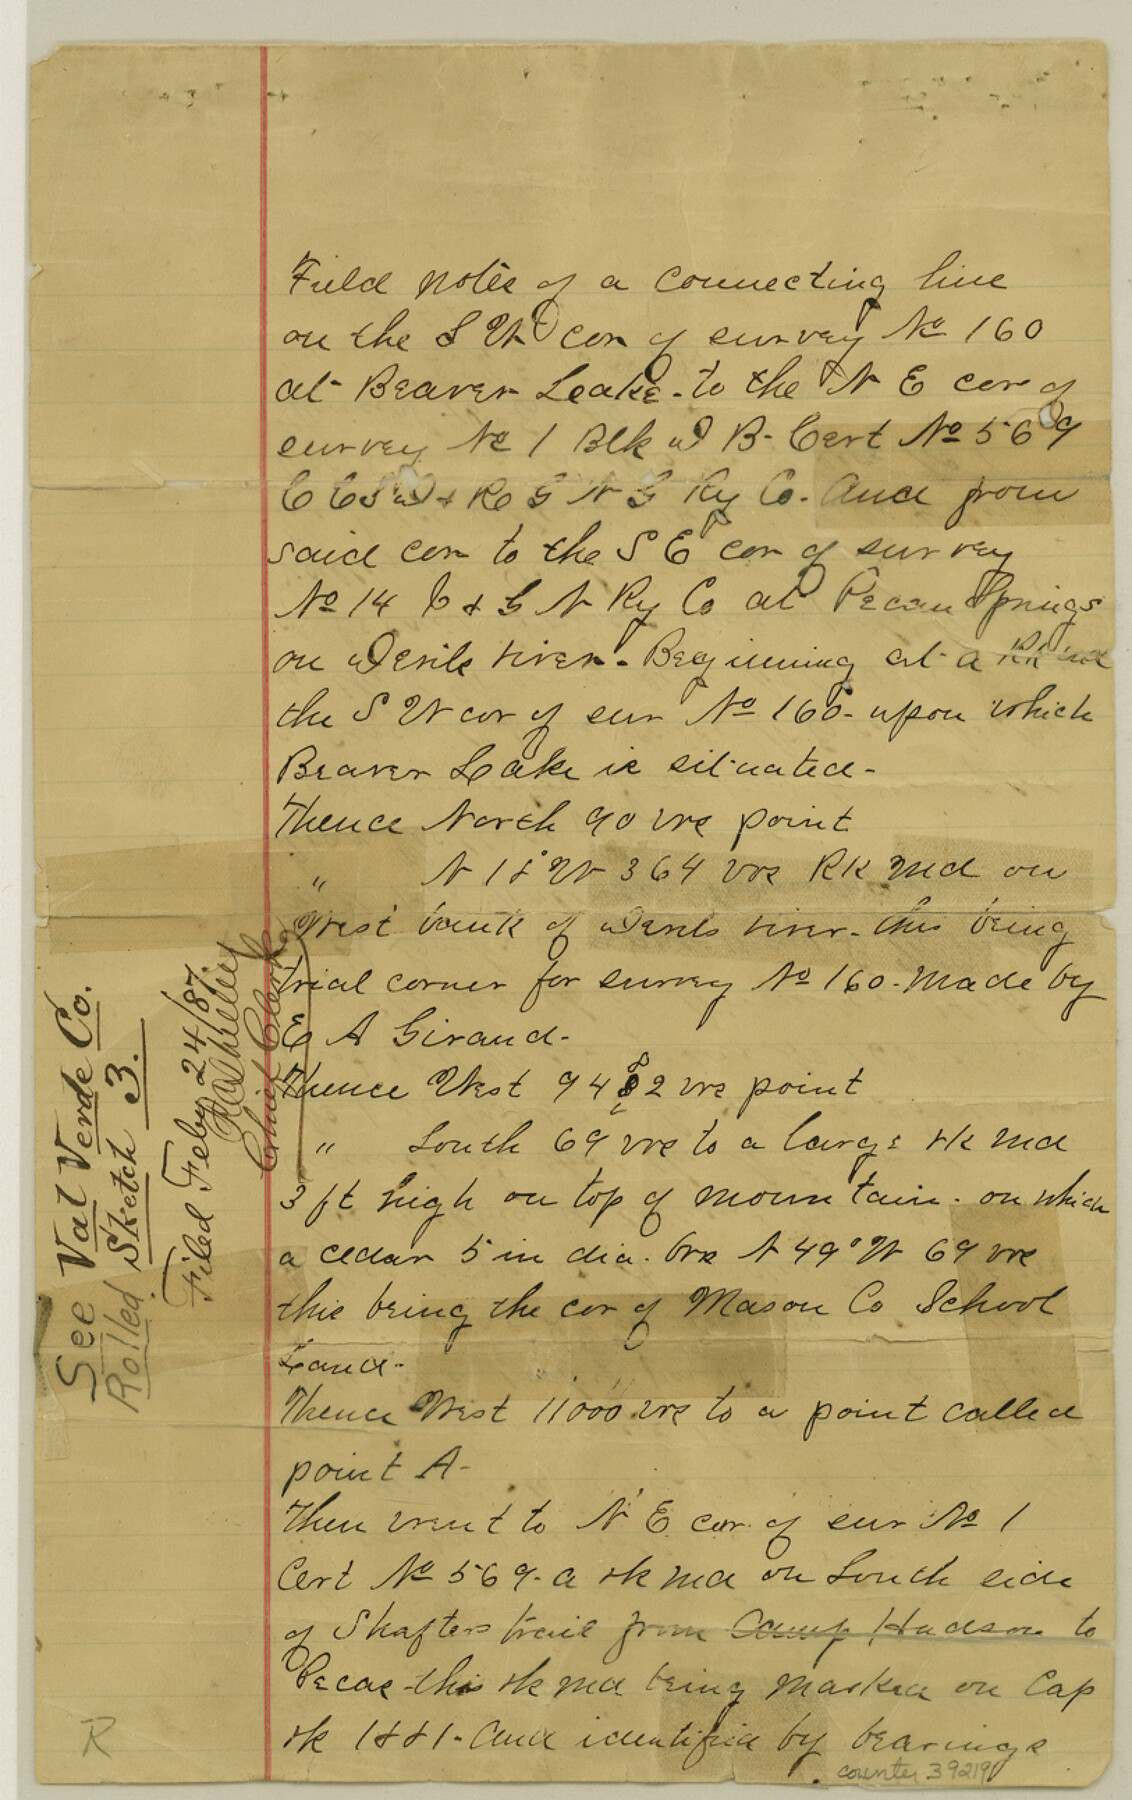 Field notes of a connecting line
on the S W cor of survey No 160
at Beaver Leake to the N E cor of
survey No 1 Blk D B. Cert No 569
C C S D & R G N G Ry Co. And from
said cor to the S E cor of survey
No 14 I & G N Ry Co at Pecan Springs
on Devils river. Beginning at a Rk md
the S W cor of sur No 160 - upon which
Beaver Lake is situated -
Thence North 90 vrs point
" N 18° W 364 vrs RK Md on
West bank of Devils river - this being
trial corner for survey No 160 - made by
E A Giraud -
Thence West 9482 vrs point
" South 69 vrs to a large rk md
3 ft high on top of mountain - on which
a cedar 5 in dia. brs N 49° W 69 vrs
this being the cor of Mason Co School
Land -
Thence West 11000 vrs to a point called
point A -
Then went to N E cor of sur No 1
Cert No 569 - a rk md on South side
of Shafters trail from Camp Hudson to
Pecos - this rk md being marked on Cap
rk 1881 - And identified by bearings
See Val Verde Co.
Rolled Sketch 3.
Filed Feby 24/87.
Chief Clerk
R
counter 39219